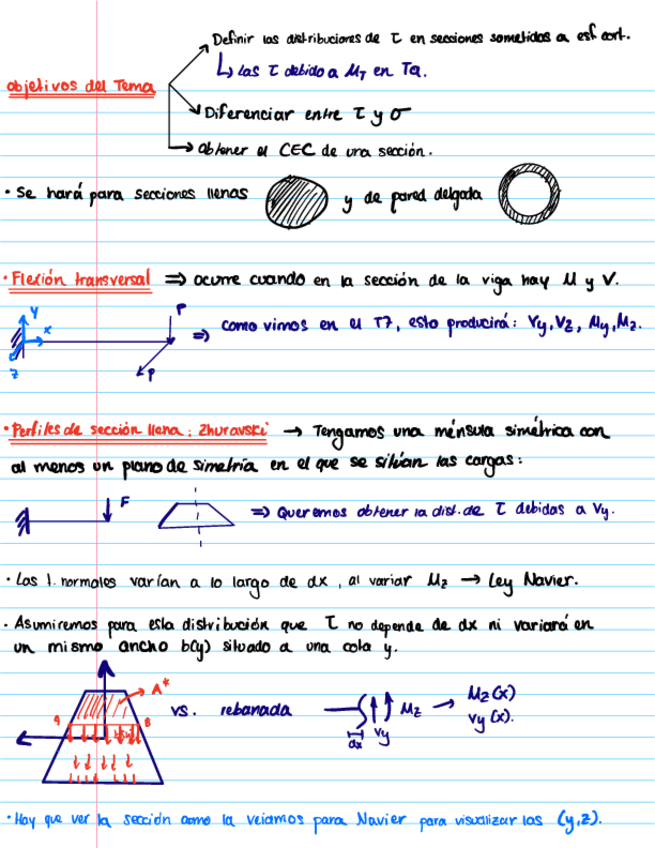 Definir las distribuciones de τ en secciones sometidas a esf cort.
↳ las τ debido a M_T en
objetivos del Tema
Diferenciar entre τ y σ
Obtener el CEC de una sección.
• Se hará para secciones llenas y de pared delgada
• Flexión transversal ⇒ ocurre cuando en la sección de la viga hay M y V.
Y
x
z
P
P
⇒ como vimos en el T7, esto producirá: Vy, Vz, My, Mz.
• Perfiles de sección llena: Zhuravski → Tengamos una ménsula simétrica con
al menos un plano de simetría en el que se sitúan las cargas:
F
⇒ Queremos obtener la dist. de τ debidas a Vy.
• Las t. normales varían a lo largo de dx, al variar Mz → Ley Navier.
• Asumiremos para esta distribución que τ no depende de dx ni variará en
un mismo ancho b(y) situado a una cota y.
A*
A
B
vs. rebanada
dx
Vy
Mz → Mz(x)
Vy(x).
• Hay que ver la sección como la veíamos para Navier para visualizar las (y,z).